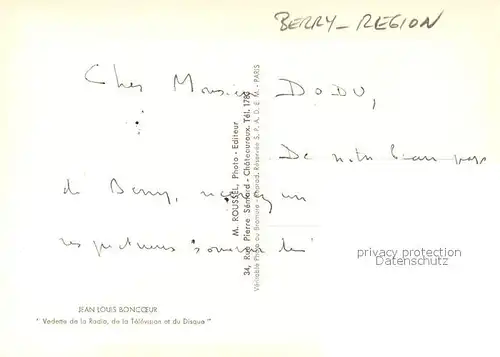 BERRY_REGION
Cher Monsieur DODU,
De notre beau pays
du Berry, recevez un
respectueux souvenir
M. ROUSSEL, Photo - Editeur
34, Rue Pierre Sémard - Châteauroux. Tél. 1780
Véritable Photo au Bromure - Reprod. Réservée S. P. A. D. E. M. - PARIS
privacy protection
Datenschutz
JEAN LOUIS BONCŒUR
" Vedette de la Radio, de la Télévision et du Disque "